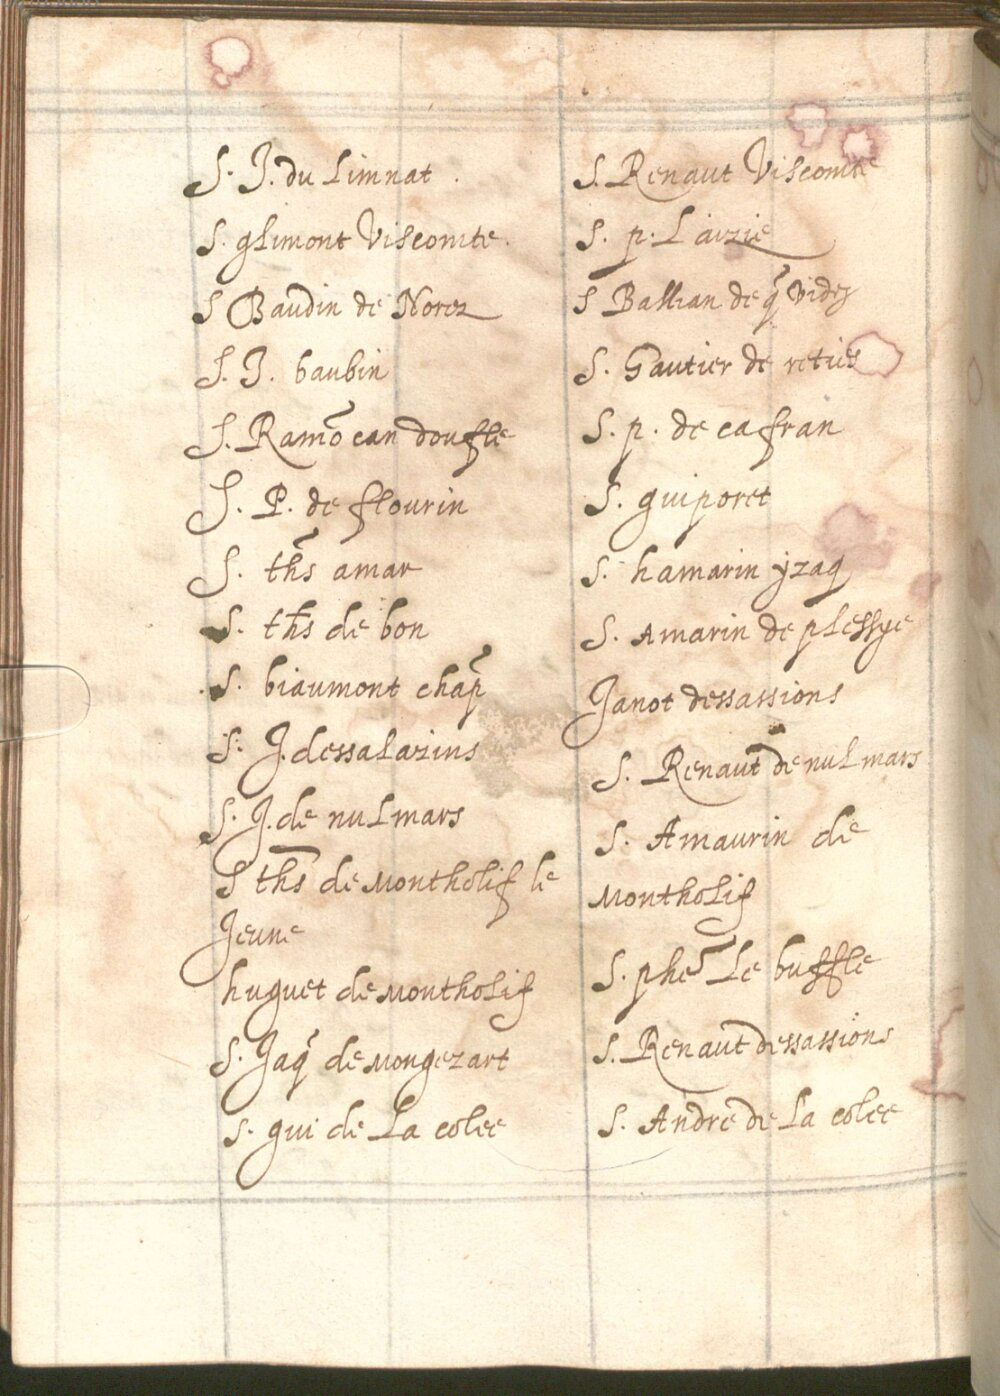 S. J. du Limnat.
S. gLimont Viscomte.
S Baudin de Norez
S. J. baubin
S. Ramõ can doufle
S. P. de flourin
S. th̃s amar
S. th̃s de bon
S. biaumont chap̃
S. J. dessaLazins
S. J. de nuLmars
S th̃s de Montholif le
Jeune
huguet de MonthoLif
S. Jaq̃ de Mongezart
S. gui de La colee
S. Renaut Viscomte
S. p. Larzie
S Ballian de q̃ Videz
S. Gautier de reties
S. p. de cafran
S. guiporet
S. hamarin yzaq
S. Amarin de pLessye
Janot dessassions
S. Renaut de nuLmars
S. Amaurin de
MonthoLif
S. phe Le buffle
S. Renaut dessassions
S. Andre de La colee